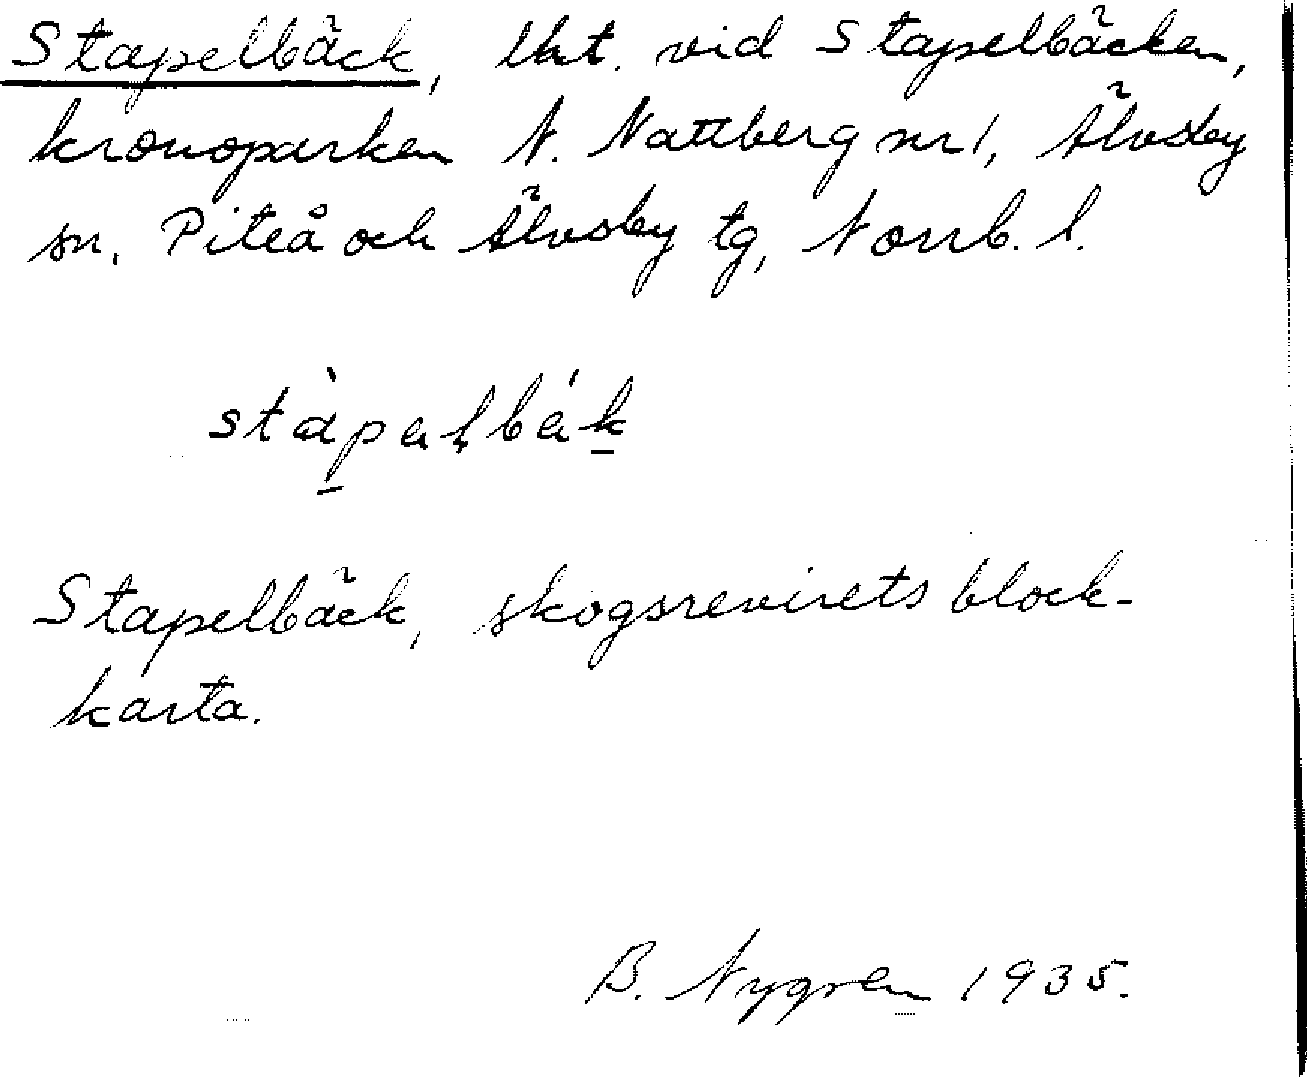 Stapelbäck, lht. vid Stapelbäcken,
kronoparken N. Nattberg nr 1, Älvsby
sn. Piteå och Älvsby tg, Norrb. l.
Stapelbäck, skogsrevirets block-
karta.
B. Nygren 1935.